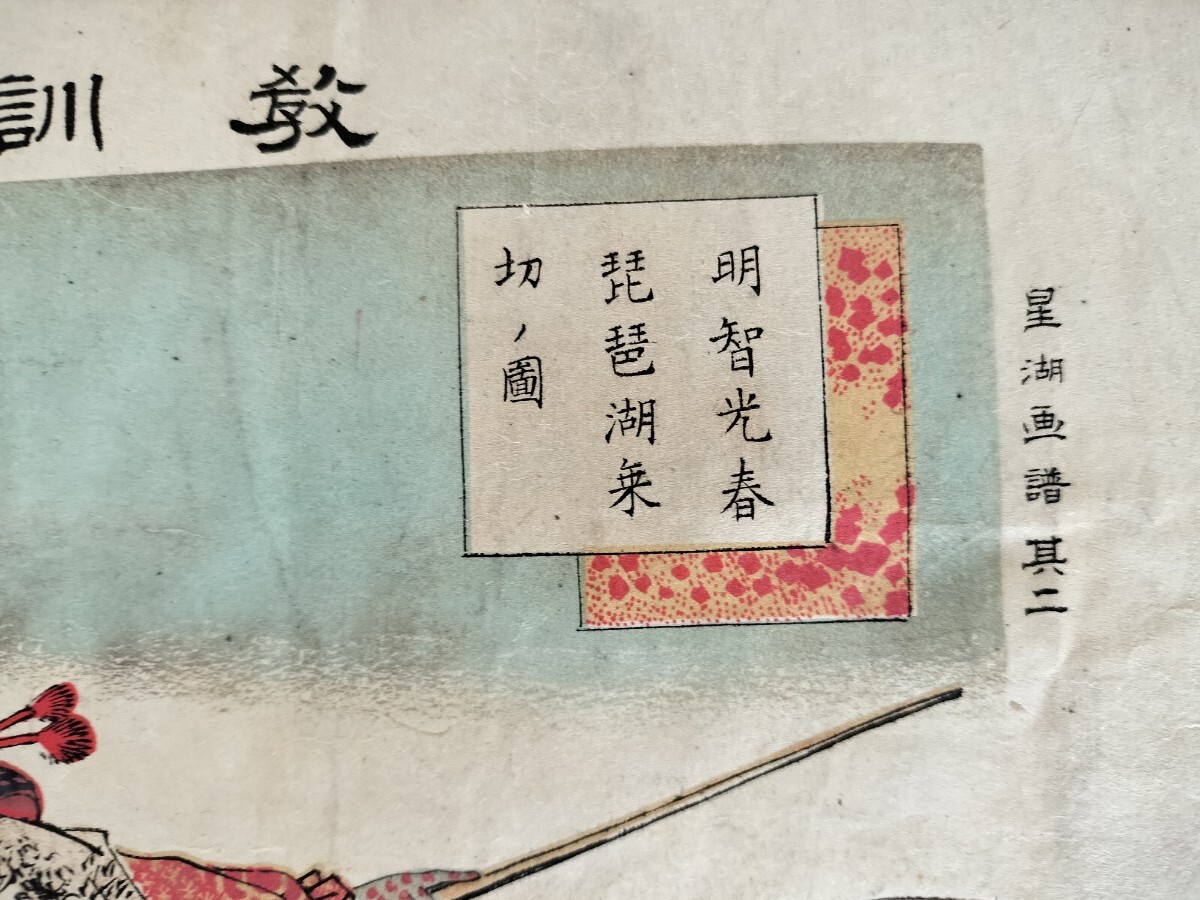 教訓
明智光春
琵琶湖乗
切ノ圖
星湖画譜其二